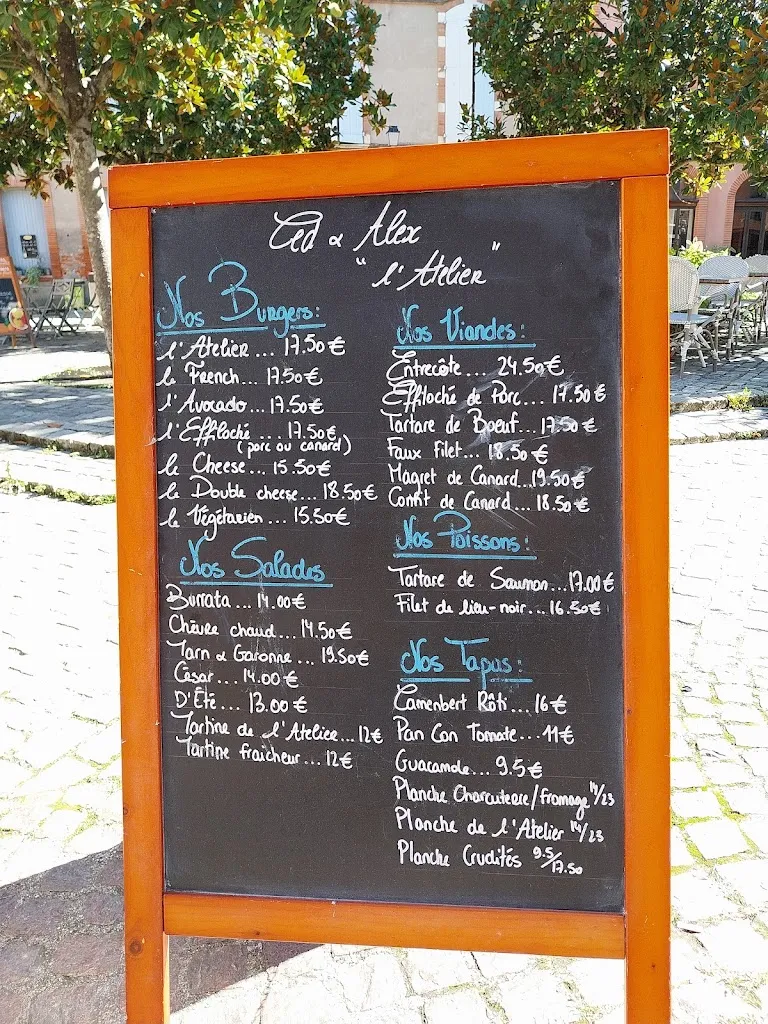 Ced & Alex
"l'Atelier"
Nos Burgers:
l'Atelier... 17.50€
le French... 17.50€
l'Avocado... 17.50€
l'Effiloché ... 17.50€
(porc ou canard)
le Cheese... 15.50€
le Double cheese... 18.50€
le Végétarien... 15.50€
Nos Salades
Burrata... 14.00€
Chèvre chaud... 14.50€
Tarn & Garonne... 19.50€
César... 14.00€
D'Été... 13.00€
Tartine de l'Atelier... 12€
Tartine fraicheur... 12€
Nos Viandes:
Entrecôte... 24.50€
Effiloché de Porc... 17.50€
Tartare de Bœuf... 17.50€
Faux Filet... 18.50€
Magret de Canard...19.50€
Confit de Canard... 18.50€
Nos Poissons:
Tartare de Saumon...17.00€
Filet de lieu-noir... 16.50€
Nos Tapas:
Camenbert Rôti... 16€
Pan Con Tomate... 11€
Guacamole... 9.5€
Planche Charcuterie/fromage 17/23
Planche de l'Atelier 14/23
Planche Crudités 9.5/17.50